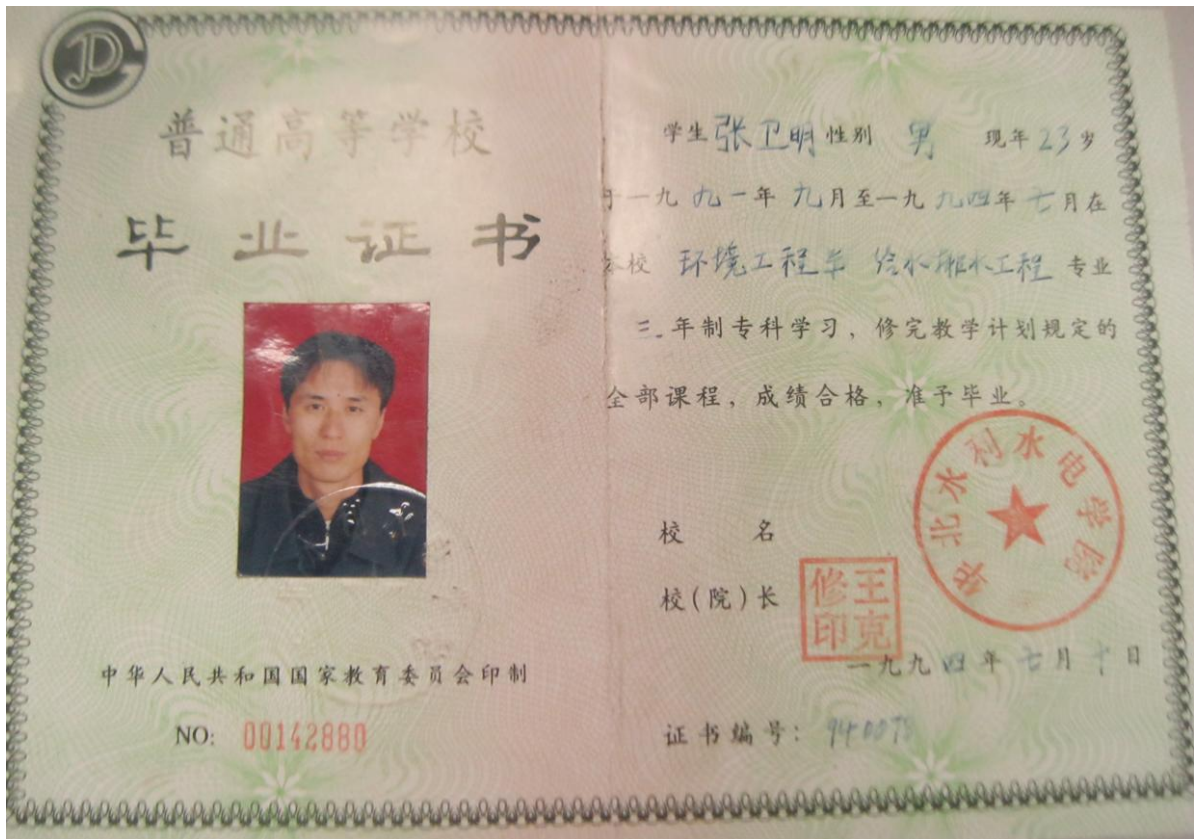 普通高等学校
毕业证书
中华人民共和国国家教育委员会印制
NO: 00142880
学生 张卫明 性别 男 现年 23 岁
于一九 九一 年 九 月至一九 九四 年 七 月在
本校 环境工程系 给水排水工程 专业
三 年制专科学习，修完教学计划规定的
全部课程，成绩合格，准予毕业。
华北水利水电学院
校 名
校（院）长
王克修印
一九九 四 年 七 月 十 日
证书编号：